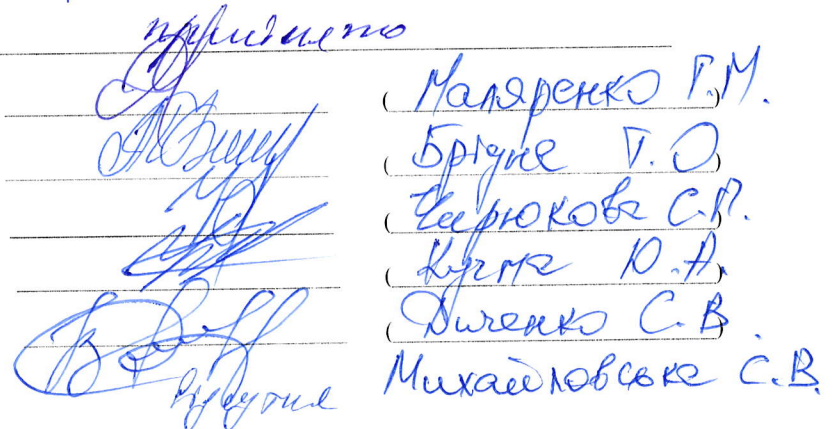 прийнято
(Маляренко Г.М.)
(Брідне Т.О.)
(Чирюкова С.П.)
(Кучма Ю.А.)
(Диченко С.В.)
відсутня Михайловська С.В.